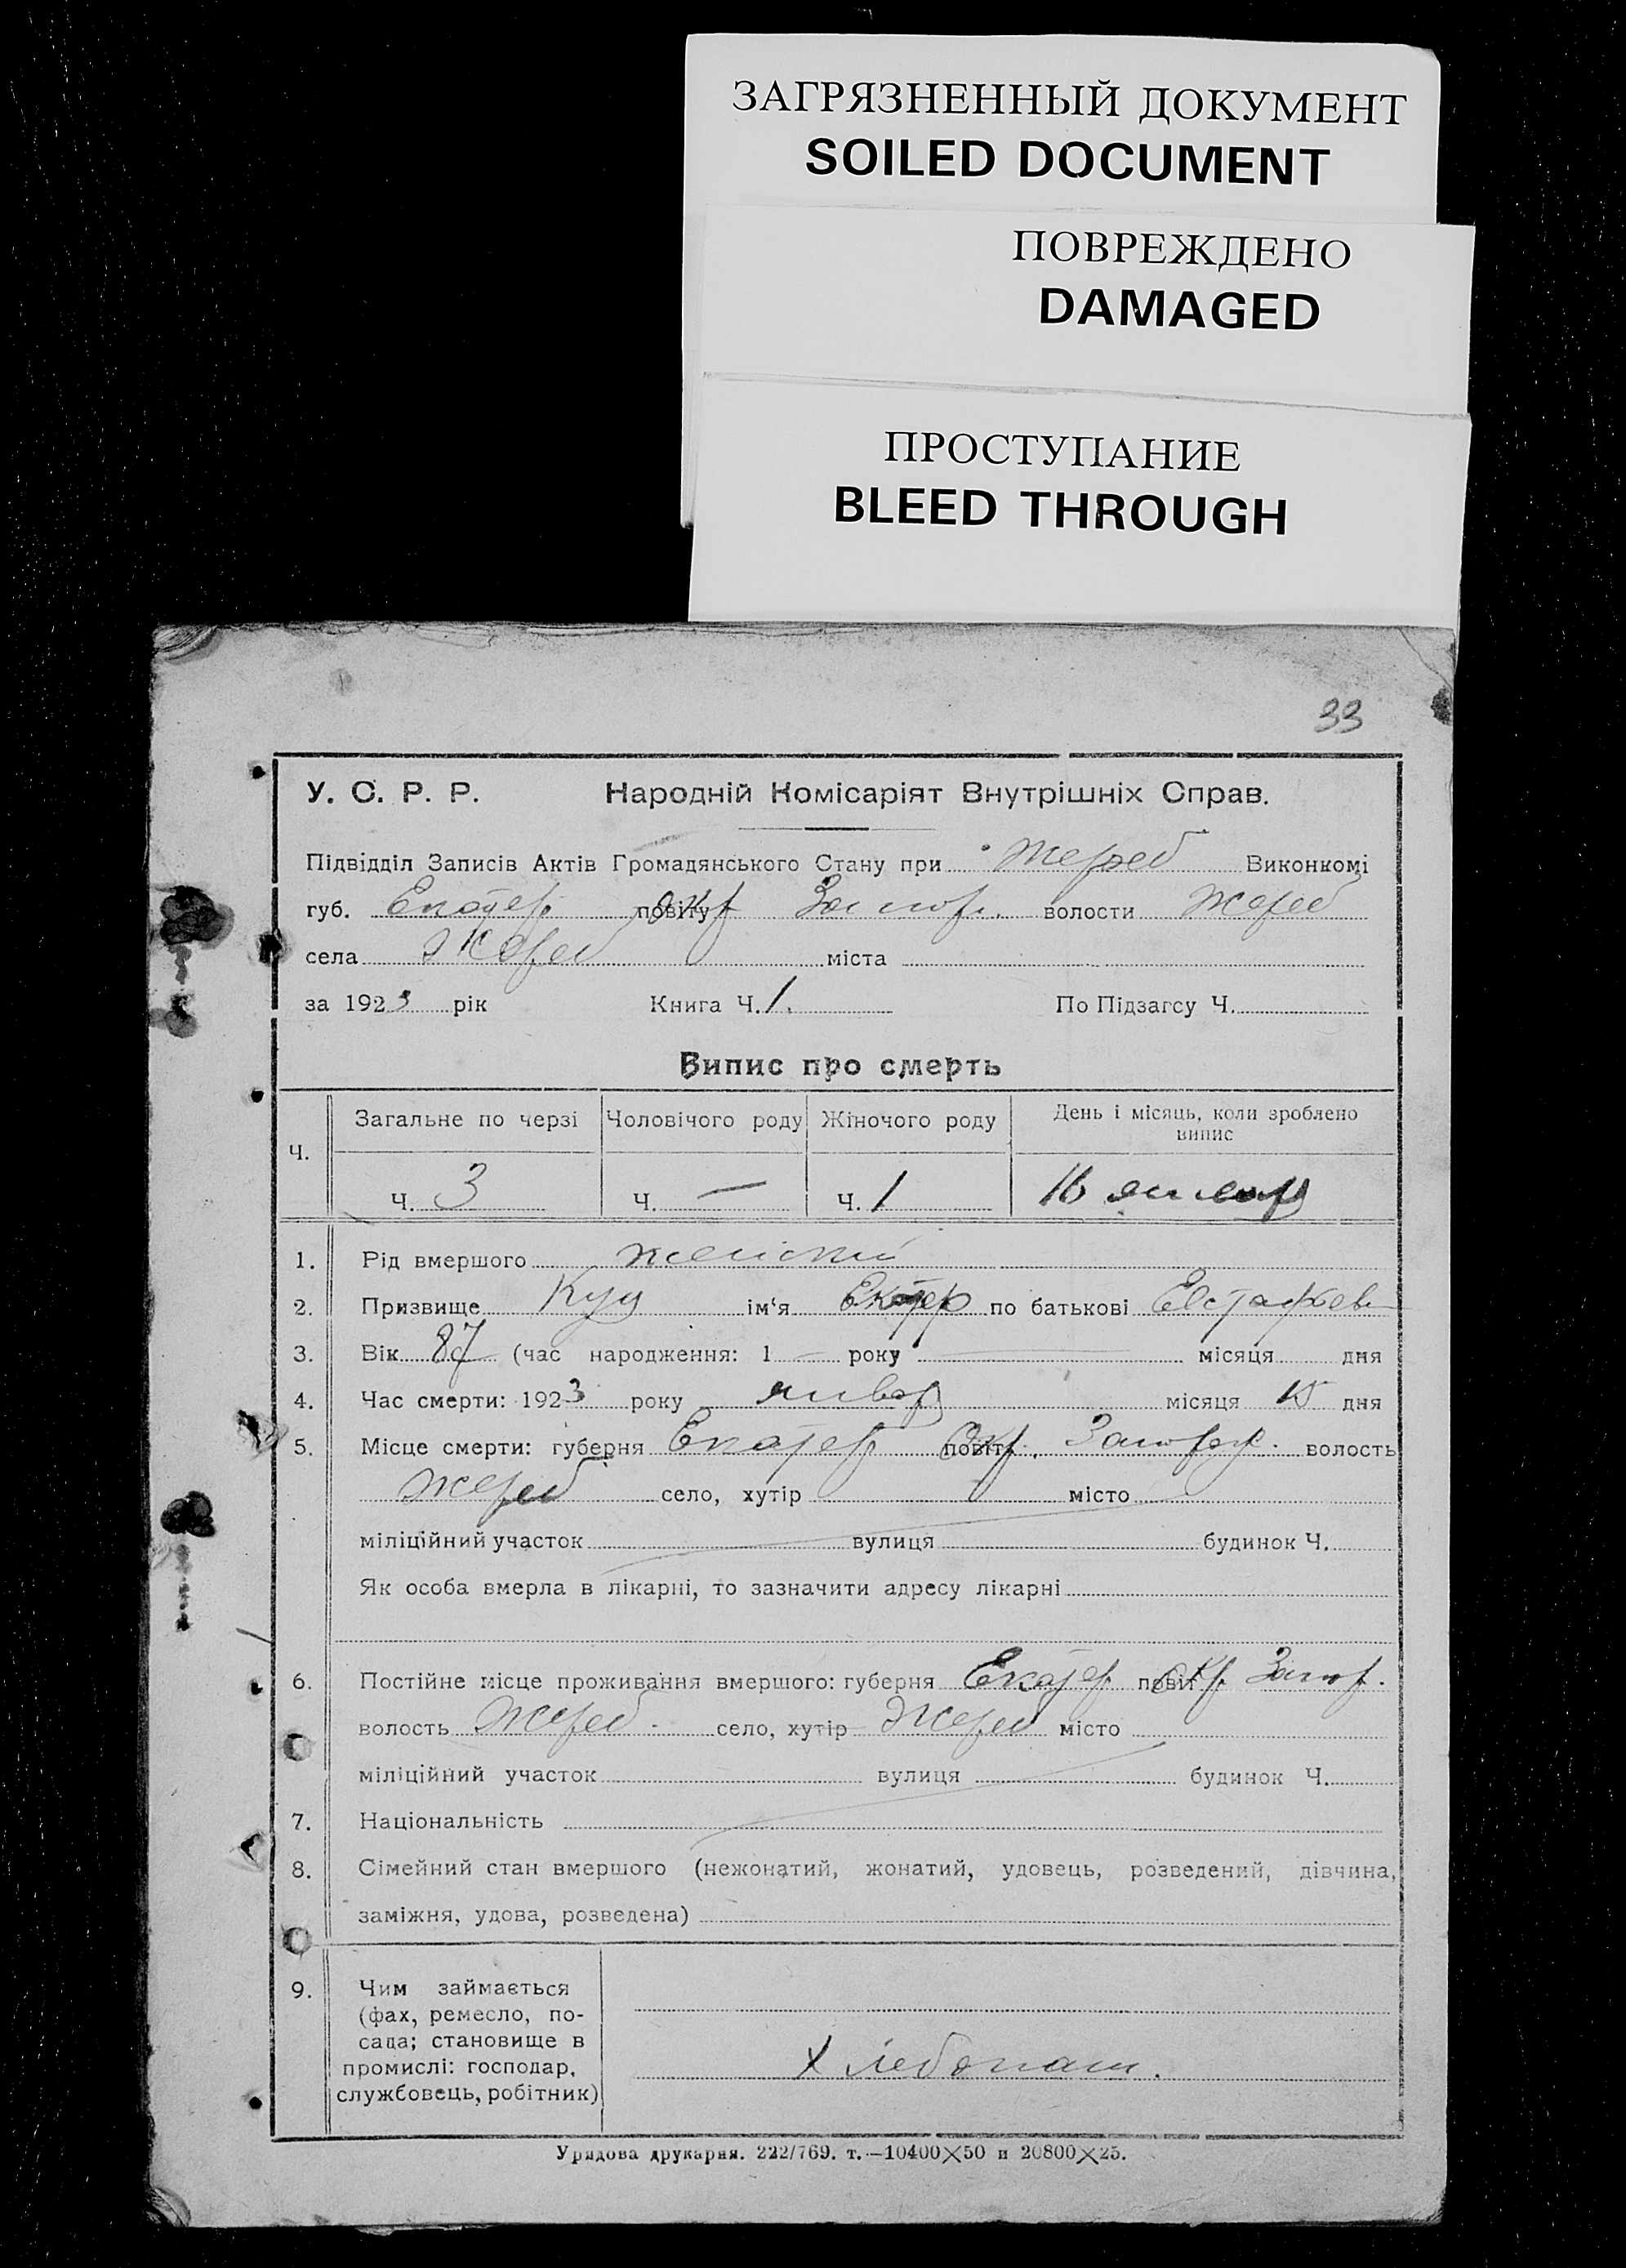 ЗАГРЯЗНЕННЫЙ ДОКУМЕНТ
SOILED DOCUMENT
ПОВРЕЖДЕНО
DAMAGED
ПРОСТУПАНИЕ
BLEED THROUGH
33
У. С. Р. Р. Народній Комісаріят Внутрішніх Справ.
Підвідділ Записів Актів Громадянського Стану при Жереб Виконкомі
губ. Екатер повіту Окр Запор. волости Жереб
села Жереб міста
за 1923 рік Книга Ч. 1. По Підзагсу Ч.
Випис про смерть
Ч. Загальне по черзі Чоловічого роду Жіночого роду День і місяць, коли зроблено випис
Ч. 3 Ч. — Ч. 1 16 января
1. Рід вмершого женский
2. Призвище Куц ім‘я Екатер по батькові Евстафьев
3. Вік 87 (час народження: 1 — року — місяця дня
4. Час смерти: 1923 року январ місяця 15 дня
5. Місце смерти: губерня Екатер повіт Окр. Запор. волость
Жереб село, хутір місто
міліційний участок вулиця будинок Ч.
Як особа вмерла в лікарні, то зазначити адресу лікарні
6. Постійне місце проживання вмершого: губерня Екатер повіт Окр Запор.
волость Жереб. село, хутір Жереб місто
міліційний участок вулиця будинок Ч.
7. Національність
8. Сімейний стан вмершого (нежонатий, жонатий, удовець, розведений, дівчина,
заміжня, удова, розведена)
9. Чим займається
(фах, ремесло, по-
сада; становище в
промислі: господар,
службовець, робітник)
Хлебопаш.
Урядова друкарня. 222/769. т.—10400×50 и 20800×25.